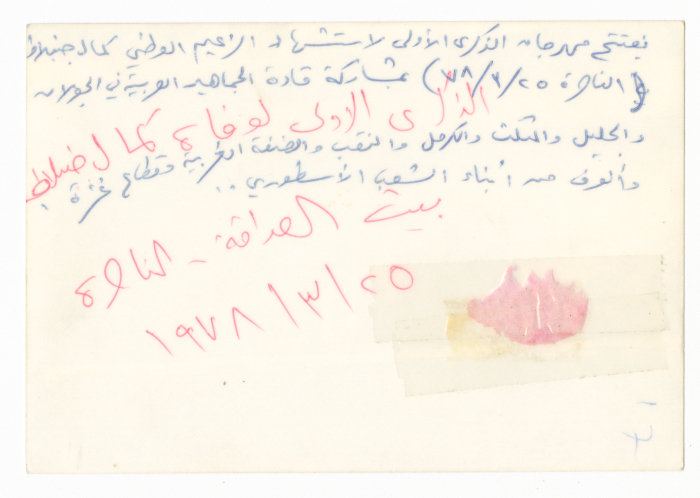 يفتتح مهرجان الذكرى الأولى لاستشهاد الزعيم الوطني كمال جنبلاط
(الناصرة ٢٥/٣/٧٨) بمشاركة قادة الجماهير العربية في الجولان
الذكرى الأولى لوفاة كمال جنبلاط
والجليل والمثلث والكرمل والنقب والضفة الغربية وقطاع غزة،
وألوف من أبناء الشعب الأسطوري..
بيت الصداقة - الناصرة
٢٥/٣/١٩٧٨